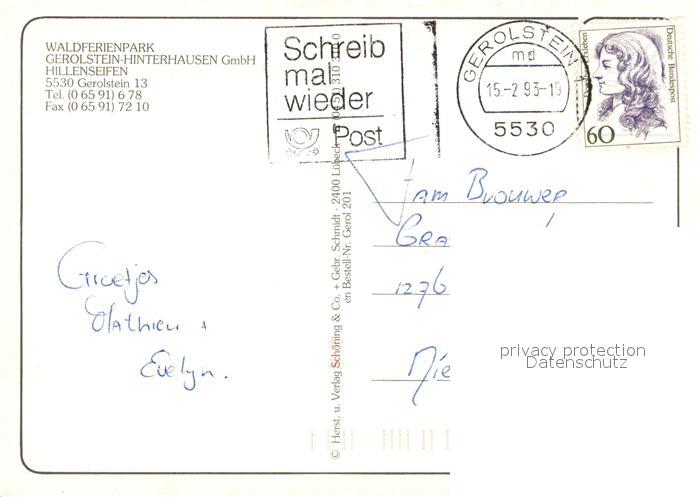 WALDFERIENPARK
GEROLSTEIN-HINTERHAUSEN GmbH
HILLENSEIFEN
5530 Gerolstein 13
Tel. (0 65 91) 6 78
Fax (0 65 91) 72 10
Schreib
mal
wieder
Post
GEROLSTEIN
md
15.-2.93-19
5530
Deutsche Bundespost
60
Fam Brouwer
Gra
1276
Groetjes
Mathieu +
Evelyn.
Mie
© Herst. u. Verlag Schöning & Co. + Gebr. Schmidt · 2400 Lübeck
en Bestell-Nr. Gerol 201
privacy protection
Datenschutz